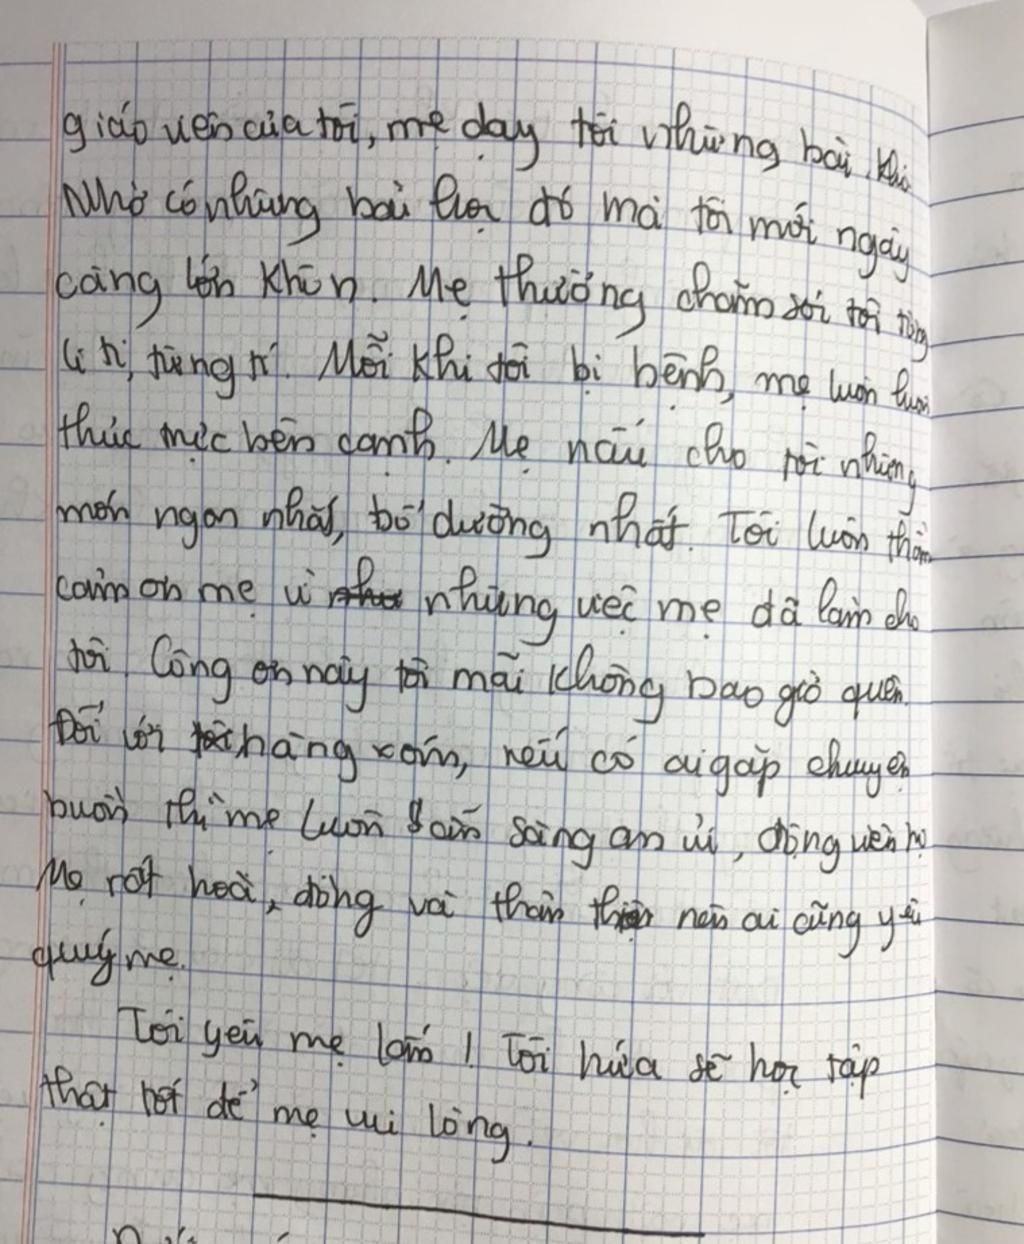 giáo viên của tôi, mẹ dạy tôi những bài khó
Nhờ có những bài học đó mà tôi mới ngày
càng lớn khôn. Mẹ thường chăm sói tôi từng
li tí, từng tí. Mỗi khi tôi bị bệnh, mẹ luôn luôn
thức trực bên cạnh. Mẹ nấu cho tôi những
món ngon nhất, bổ dưỡng nhất. Tôi luôn thầm
cảm ơn mẹ vì những việc mẹ đã làm cho
tôi. Công ơn này tôi mãi không bao giờ quên.
Đối với hàng xóm, nếu có ai gặp chuyện
buồn thì mẹ luôn sẵn sàng an ủi, động viên họ
Mẹ rất hoà, đồng và thân thiện nên ai cũng yêu
quý mẹ.
Tôi yêu mẹ lắm! Tôi hứa sẽ học tập
thật tốt để mẹ vui lòng.